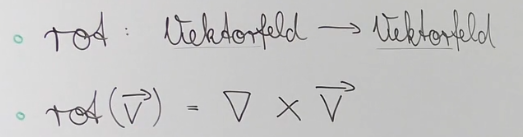 • rot : Vektorfeld → Vektorfeld
• rot(V⃗) = ∇ × V⃗